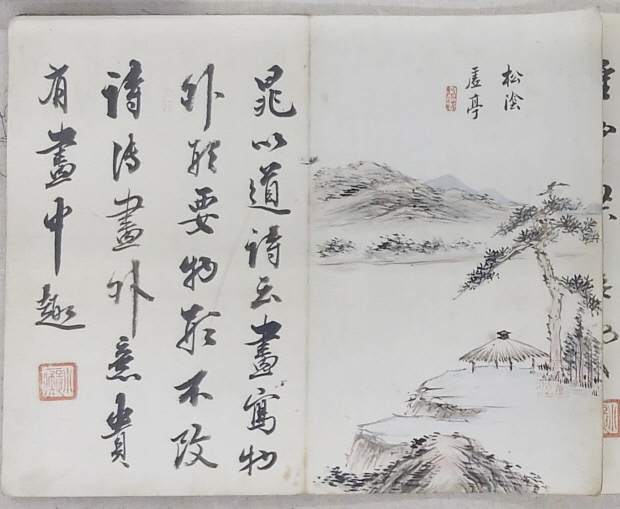 松陰
虛亭
晁以道詩云畫寫物
外形要物形不改
詩傳畫外意貴
有畫中趣